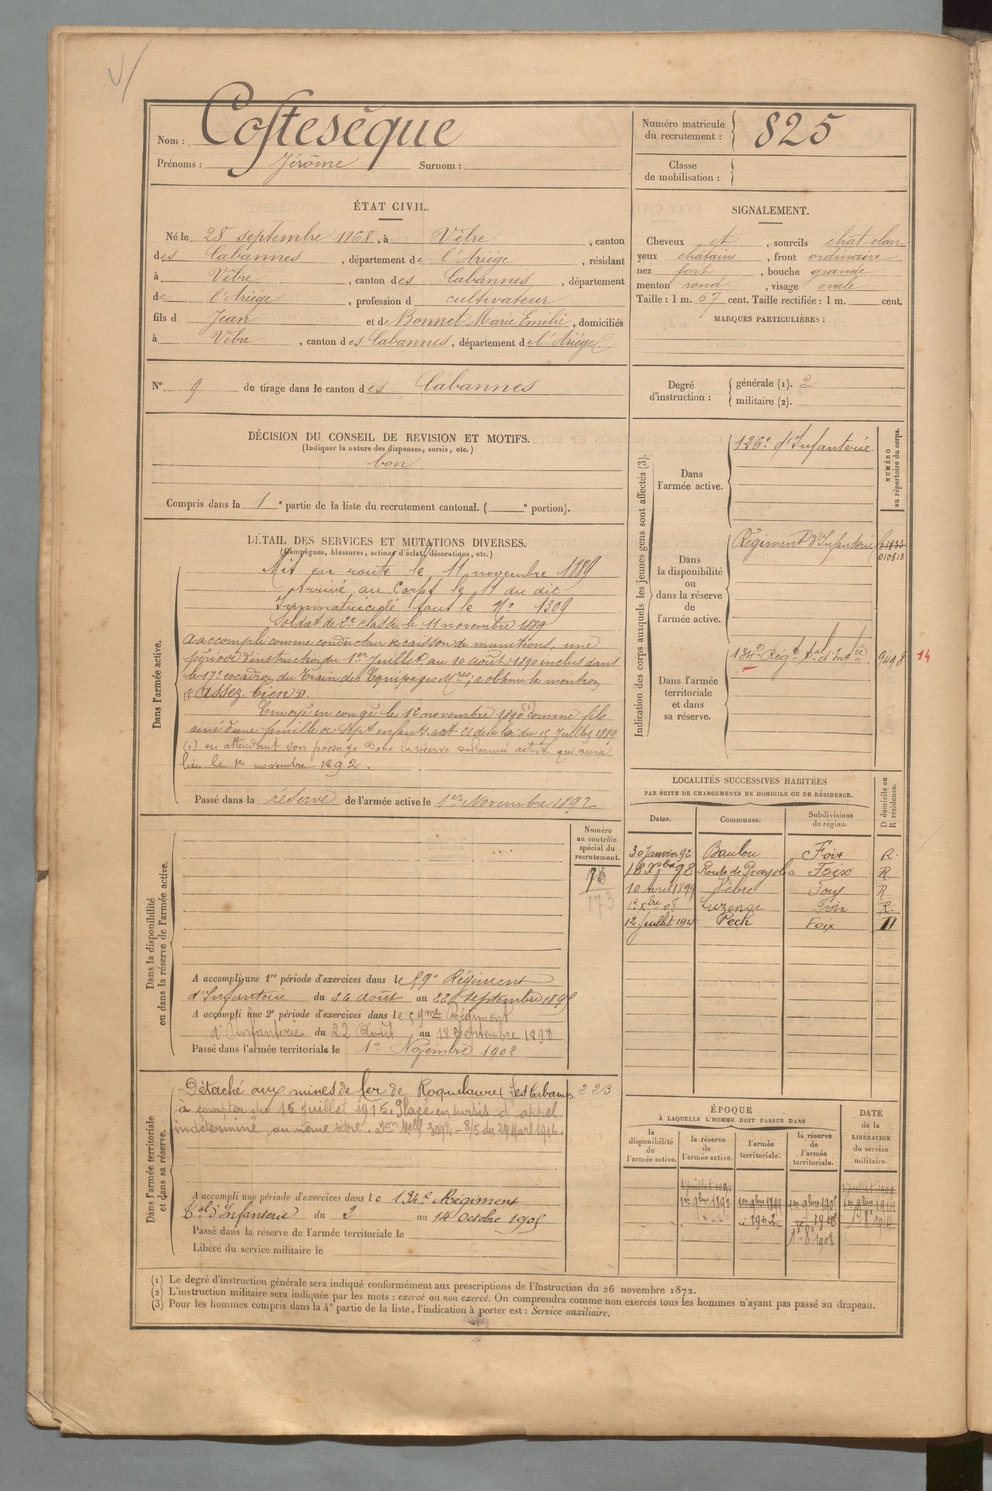 Nom : Costesèque
Prénoms : Jérôme Surnom :
Numéro matricule du recrutement : 825
Classe de mobilisation :
ÉTAT CIVIL.
Né le 28 septembre 1868, à Vèbre, canton
des Cabannes, département de l'Ariège, résidant
à Vèbre, canton des Cabannes, département
de l'Ariège, profession d cultivateur
fils d Jean et de Bonnet Marie Emilie, domiciliés
à Vèbre, canton des Cabannes, département de l'Ariège
SIGNALEMENT.
Cheveux et, sourcils chat-clair
yeux châtains, front ordinaire
nez fort, bouche grande
menton rond, visage ovale
Taille : 1 m. 67 cent. Taille rectifiée : 1 m. cent.
MARQUES PARTICULIÈRES :
N° 9 de tirage dans le canton des Cabannes
Degré d'instruction : générale (1). 2
militaire (2).
DÉCISION DU CONSEIL DE REVISION ET MOTIFS.
(Indiquer la nature des dispenses, sursis, etc.)
bon
Compris dans la 1e partie de la liste du recrutement cantonal. ( e portion).
DÉTAIL DES SERVICES ET MUTATIONS DIVERSES.
(Campagnes, blessures, actions d'éclat, décorations, etc.)
Dans l'armée active.
Mis en route le 11 novembre 1889
Arrivé au Corps le 11 du dit
Immatriculé sous le N° 1309
Soldat de 2e classe le 11 novembre 1889
A accompli comme conducteur de caisson de munitions, une
période d'instruction du 1er Juillet au 10 août 1890 inclus dans
le 17e escadron du Train des Equipages Mres, a obtenu la mention
"Assez bien".
Envoyé en congé le 12 novembre 1890 (1) comme fils
ainé d'une famille de sept enfants art. 21 de la loi du 15 Juillet 1889
(1) en attendant son passage dans la réserve de l'armée active qui aura
lieu le 1er novembre 1892.
Passé dans la réserve de l'armée active le 1er Novembre 1892
Indication des corps auxquels les jeunes gens sont affectés (3).
NUMÉRO au répertoire du corps.
Dans l'armée active.
126e d'Infanterie
Dans la disponibilité ou dans la réserve de l'armée active.
Régiment d'Infanterie
010813
Dans l'armée territoriale et dans sa réserve.
134e Régt tal d'Infie 14
LOCALITÉS SUCCESSIVES HABITÉES
PAR SUITE DE CHANGEMENTS DE DOMICILE OU DE RÉSIDENCE.
Dates. Communes. Subdivisions de région. D domicile ou R résidence.
30 Janvier 92 Baulou Foix R.
98 Foix R
10 Avril 1899 Vèbre Foix R
08 Luzenac Foix R.
12 Juillet Pech Foix
Dans la disponibilité ou dans la réserve de l'armée active.
Numéro au contrôle spécial du recrutement.
173
A accompli une 1re période d'exercices dans le 59e Régiment
d'Infanterie du 26 août au 22 septembre 1895
A accompli une 2e période d'exercices dans le 59me Régiment
d'Infanterie du 22 Août au 18 Septembre 1898
Passé dans l'armée territoriale le 1er Novembre 1902
Dans l'armée territoriale et dans sa réserve.
Détaché aux mines de fer de Roquelaure (les Cabannes) 223
à compter du 15 Juillet 1915. Placé en sursis d'appel
indéterminé, au même titre. 3092 - 8/5 du 24 Mars 1916.
A accompli une période d'exercices dans le 134e Régiment
tal d'Infanterie du 2 au 14 Octobre 1905
Passé dans la réserve de l'armée territoriale le
Libéré du service militaire le
ÉPOQUE
À LAQUELLE L'HOMME DOIT PASSER DANS
la disponibilité de l'armée active. la réserve de l'armée active. l'armée territoriale. la réserve de l'armée territoriale.
DATE de la LIBÉRATION du service militaire.
1er 9bre 1892
1902
1-8 1908
(1) Le degré d'instruction générale sera indiqué conformément aux prescriptions de l'Instruction du 26 novembre 1872.
(2) L'instruction militaire sera indiquée par les mots : exercé ou non exercé. On comprendra comme non exercés tous les hommes n'ayant pas passé au drapeau.
(3) Pour les hommes compris dans la 4e partie de la liste, l'indication à porter est : Service auxiliaire.